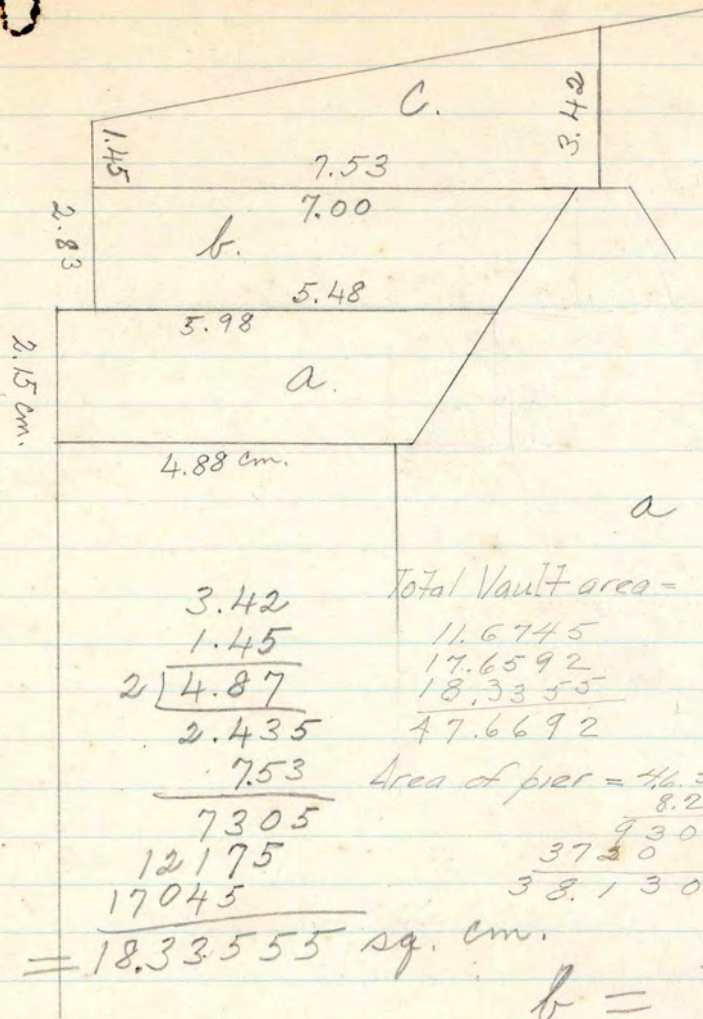 C.
1.45
3.42
7.53
7.00
2.83
b.
5.48
5.98
2.15 cm.
a.
4.88 cm.
a
3.42
1.45
2 4.87
2.435
7.53
7305
12175
17045
= 18.33555 sq. cm.
Total Vault area =
11.6745
17.6592
18.3355
47.6692
Area of pier = 46.5
8.2
930
3720
38.130
b =